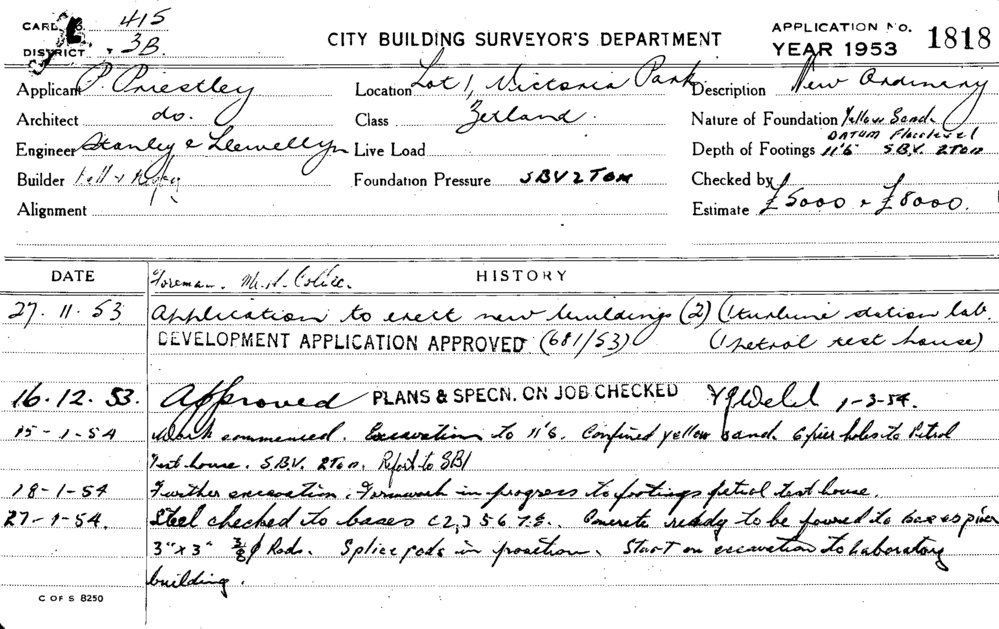 CARD No. 415
DISTRICT 3B
CITY BUILDING SURVEYOR'S DEPARTMENT
APPLICATION NO. 1818
YEAR 1953
Applicant P. Priestley
Location Lot 1, Victoria Park
Description New Ordinary
Architect do.
Class Zetland.
Nature of Foundation Yellow Sand
DATUM Floor level
Engineer Stanley & Llewellyn
Live Load
Depth of Footings 11'6 S.B.V. 2 Ton
Builder
Foundation Pressure SBV 2 TON
Checked by
Alignment
Estimate £5000 + £8000.
DATE
HISTORY
Foreman. Mr.
27.11.53 Application to erect new buildings (2) (1 turbine station lab.
DEVELOPMENT APPLICATION APPROVED (681/53) (1 petrol test house)
16.12.53. Approved PLANS & SPECN. ON JOB CHECKED 1-3-54.
15-1-54 Work commenced. Excavation to 11'6. Confined yellow sand. 6 pier holes to Petrol
Test house. S.B.V. 2 Ton. Report to SBI
18-1-54 Further excavation. Formwork in progress to footings petrol test house.
27-1-54. Steel checked to bases Concrete ready to be poured to bases piers
3"x3" 3/8 ϕ Rods. Splice rods in position. Start on excavation to Laboratory
building.
C OF S 8250